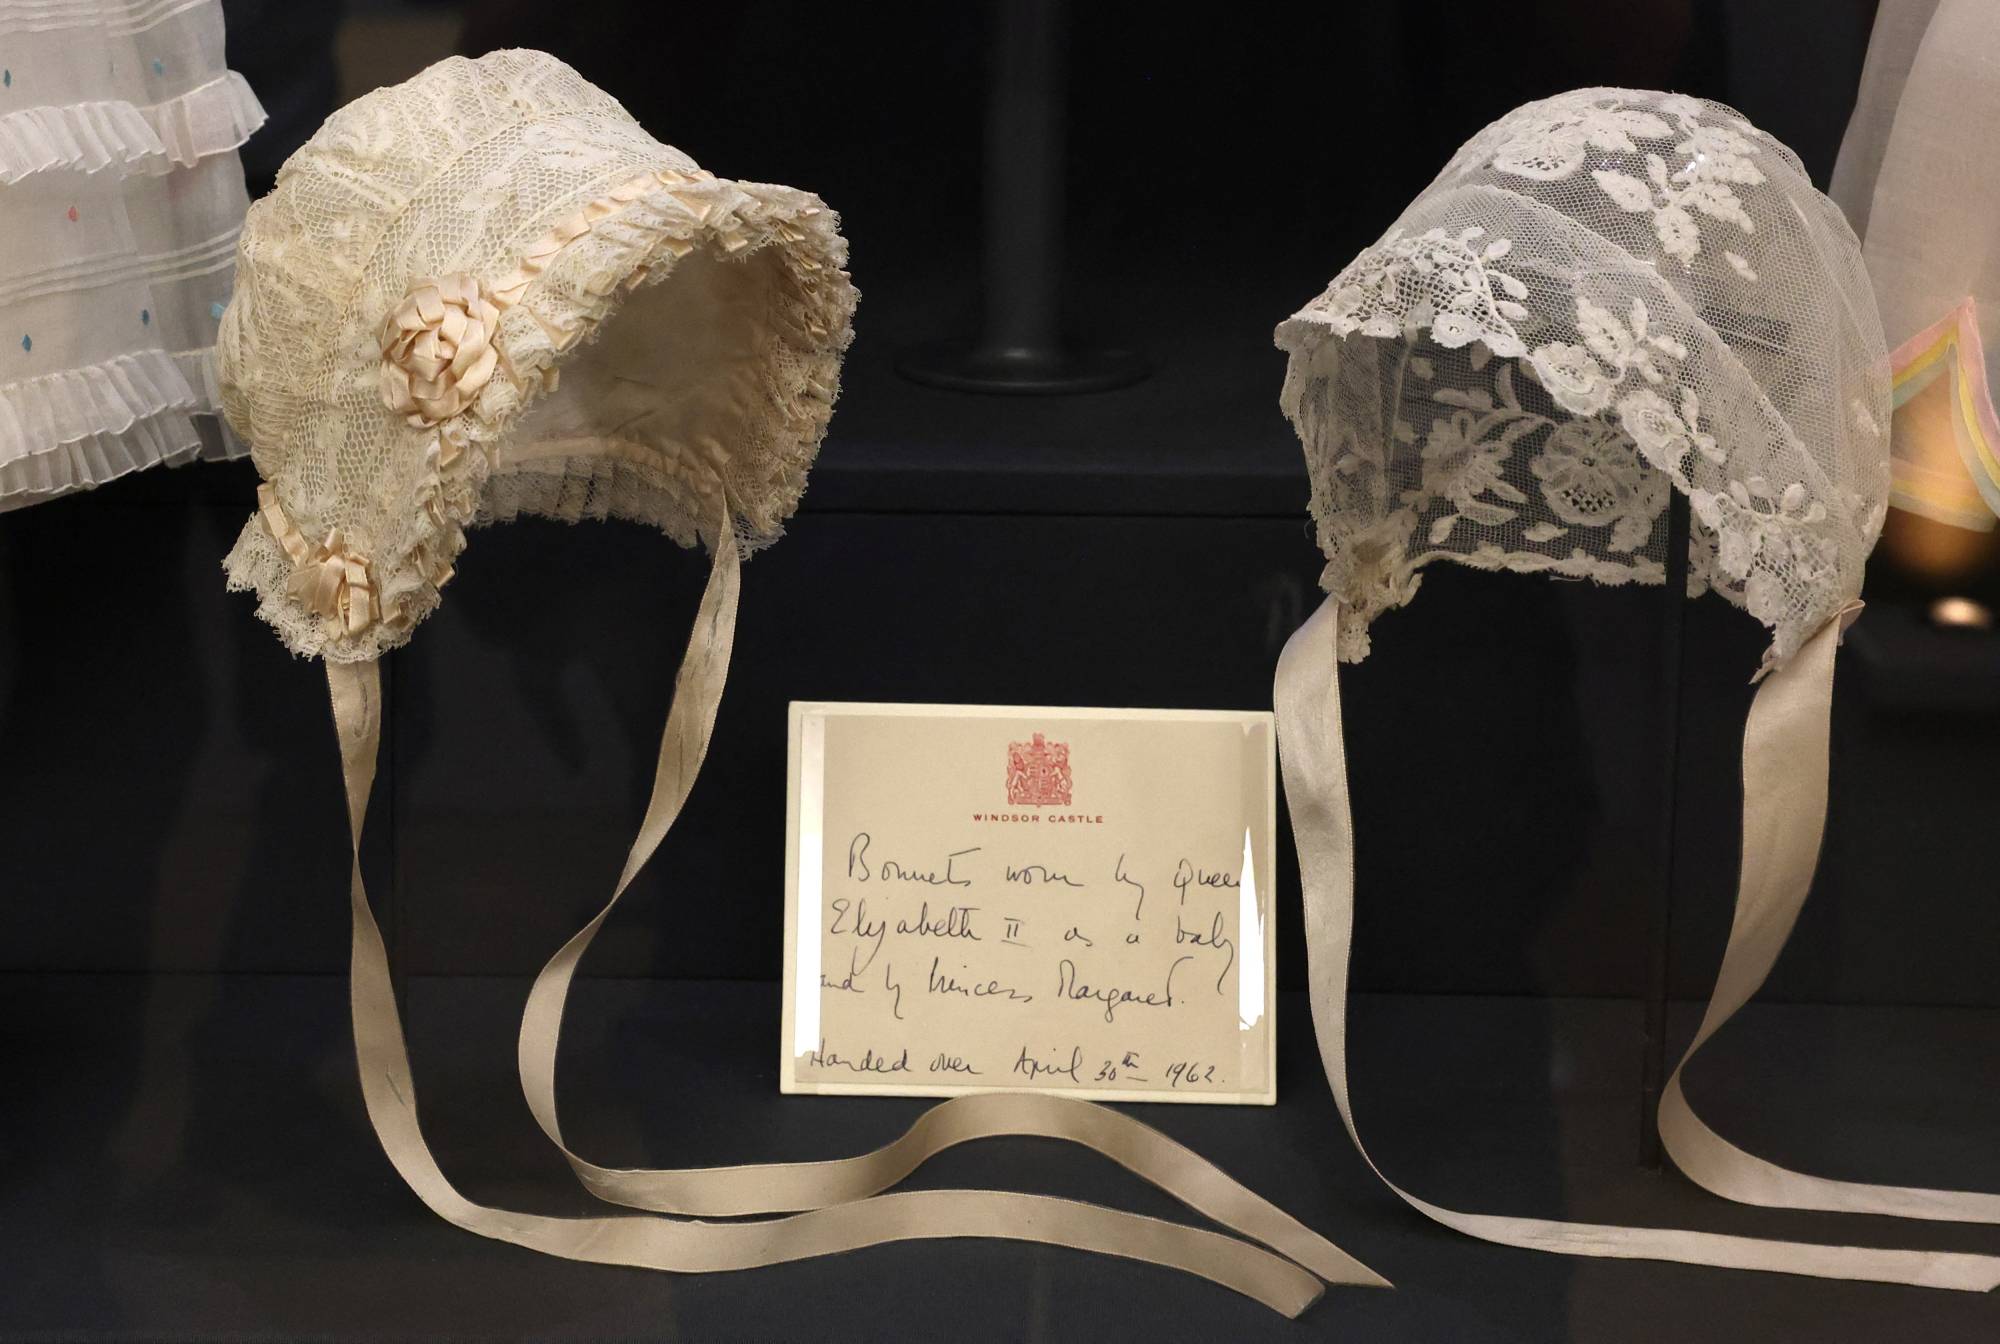 WINDSOR CASTLE
Bonnets worn by Queen
Elizabeth II as a baby
and by Princess Margaret.
Handed over April 30th 1962.